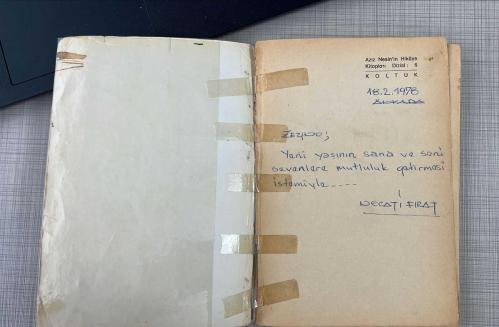 Aziz Nesin'in Hikâye
Kitapları Dizisi : 6
KOLTUK
18.2.1978
Yeni yaşının sana ve seni
sevenlere mutluluk getirmesi
istemiyle ----
NECATİ FIRAT